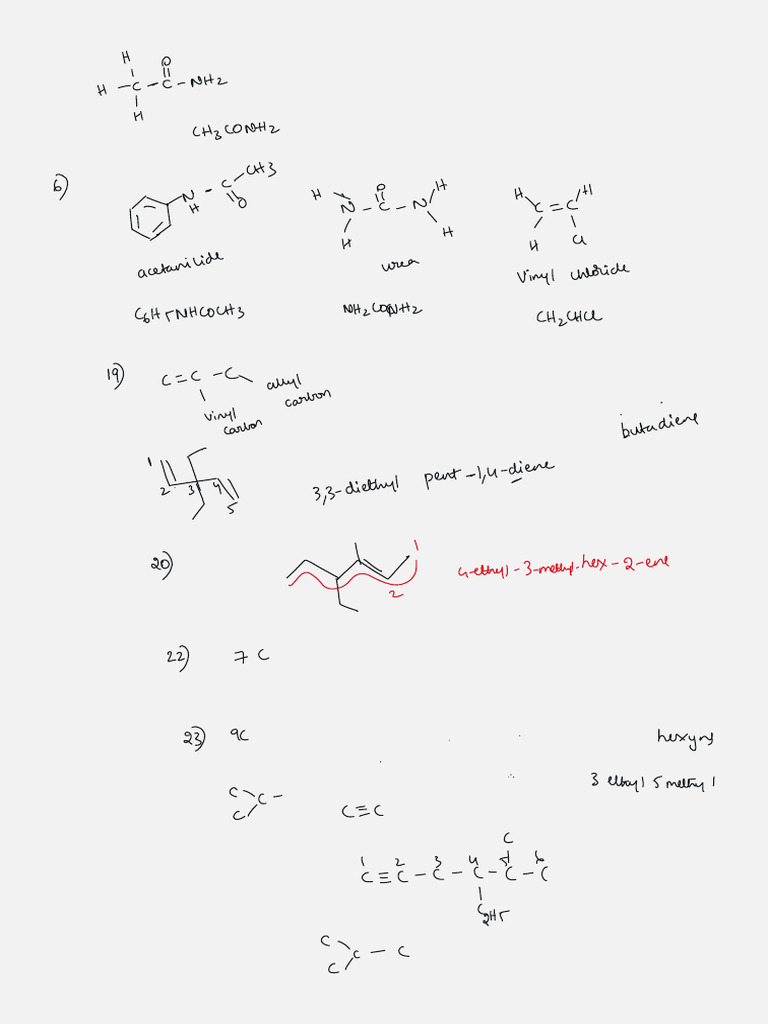 H O
H - C - C - NH2
H
CH3CONH2
6)
N - C - CH3
H O
H N - C - N H
O
H H
H H
C = C
H Cl
acetanilide urea Vinyl chloride
C6H5NHCOCH3 NH2CONH2 CH2CHCl
19) C=C - C allyl carbon
vinyl carbon
butadiene
1 2 3 4 5
3,3-diethyl pent-1,4-diene
20) 1 2 4-ethyl-3-methyl-hex-2-ene
22) 7 C
23) 9C hexyny
3 ethyl 5 methyl 1
C C -
C
C≡C
C
1 2 3 4 5 6
C≡C - C - C - C - C
C2H5
C
C - C
C